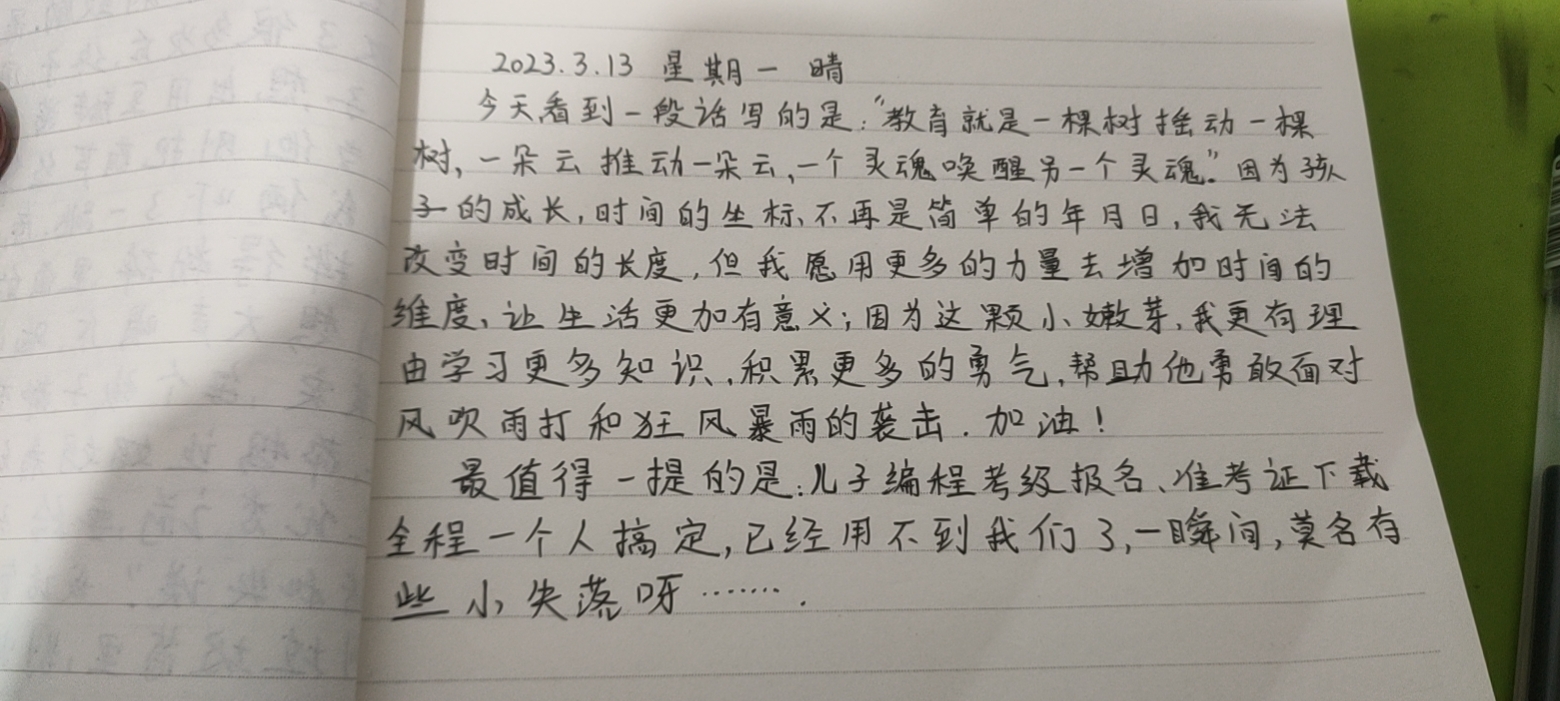 2023.3.13 星期一 晴
今天看到一段话写的是:“教育就是一棵树摇动一棵
树,一朵云推动一朵云,一个灵魂唤醒另一个灵魂.”因为孩
子的成长,时间的坐标,不再是简单的年月日,我无法
改变时间的长度,但我愿用更多的力量去增加时间的
维度,让生活更加有意义;因为这颗小嫩芽,我更有理
由学习更多知识,积累更多的勇气,帮助他勇敢面对
风吹雨打和狂风暴雨的袭击.加油!
最值得一提的是:儿子编程考级报名、准考证下载
全程一个人搞定,已经用不到我们了,一瞬间,莫名有
些小失落呀…….